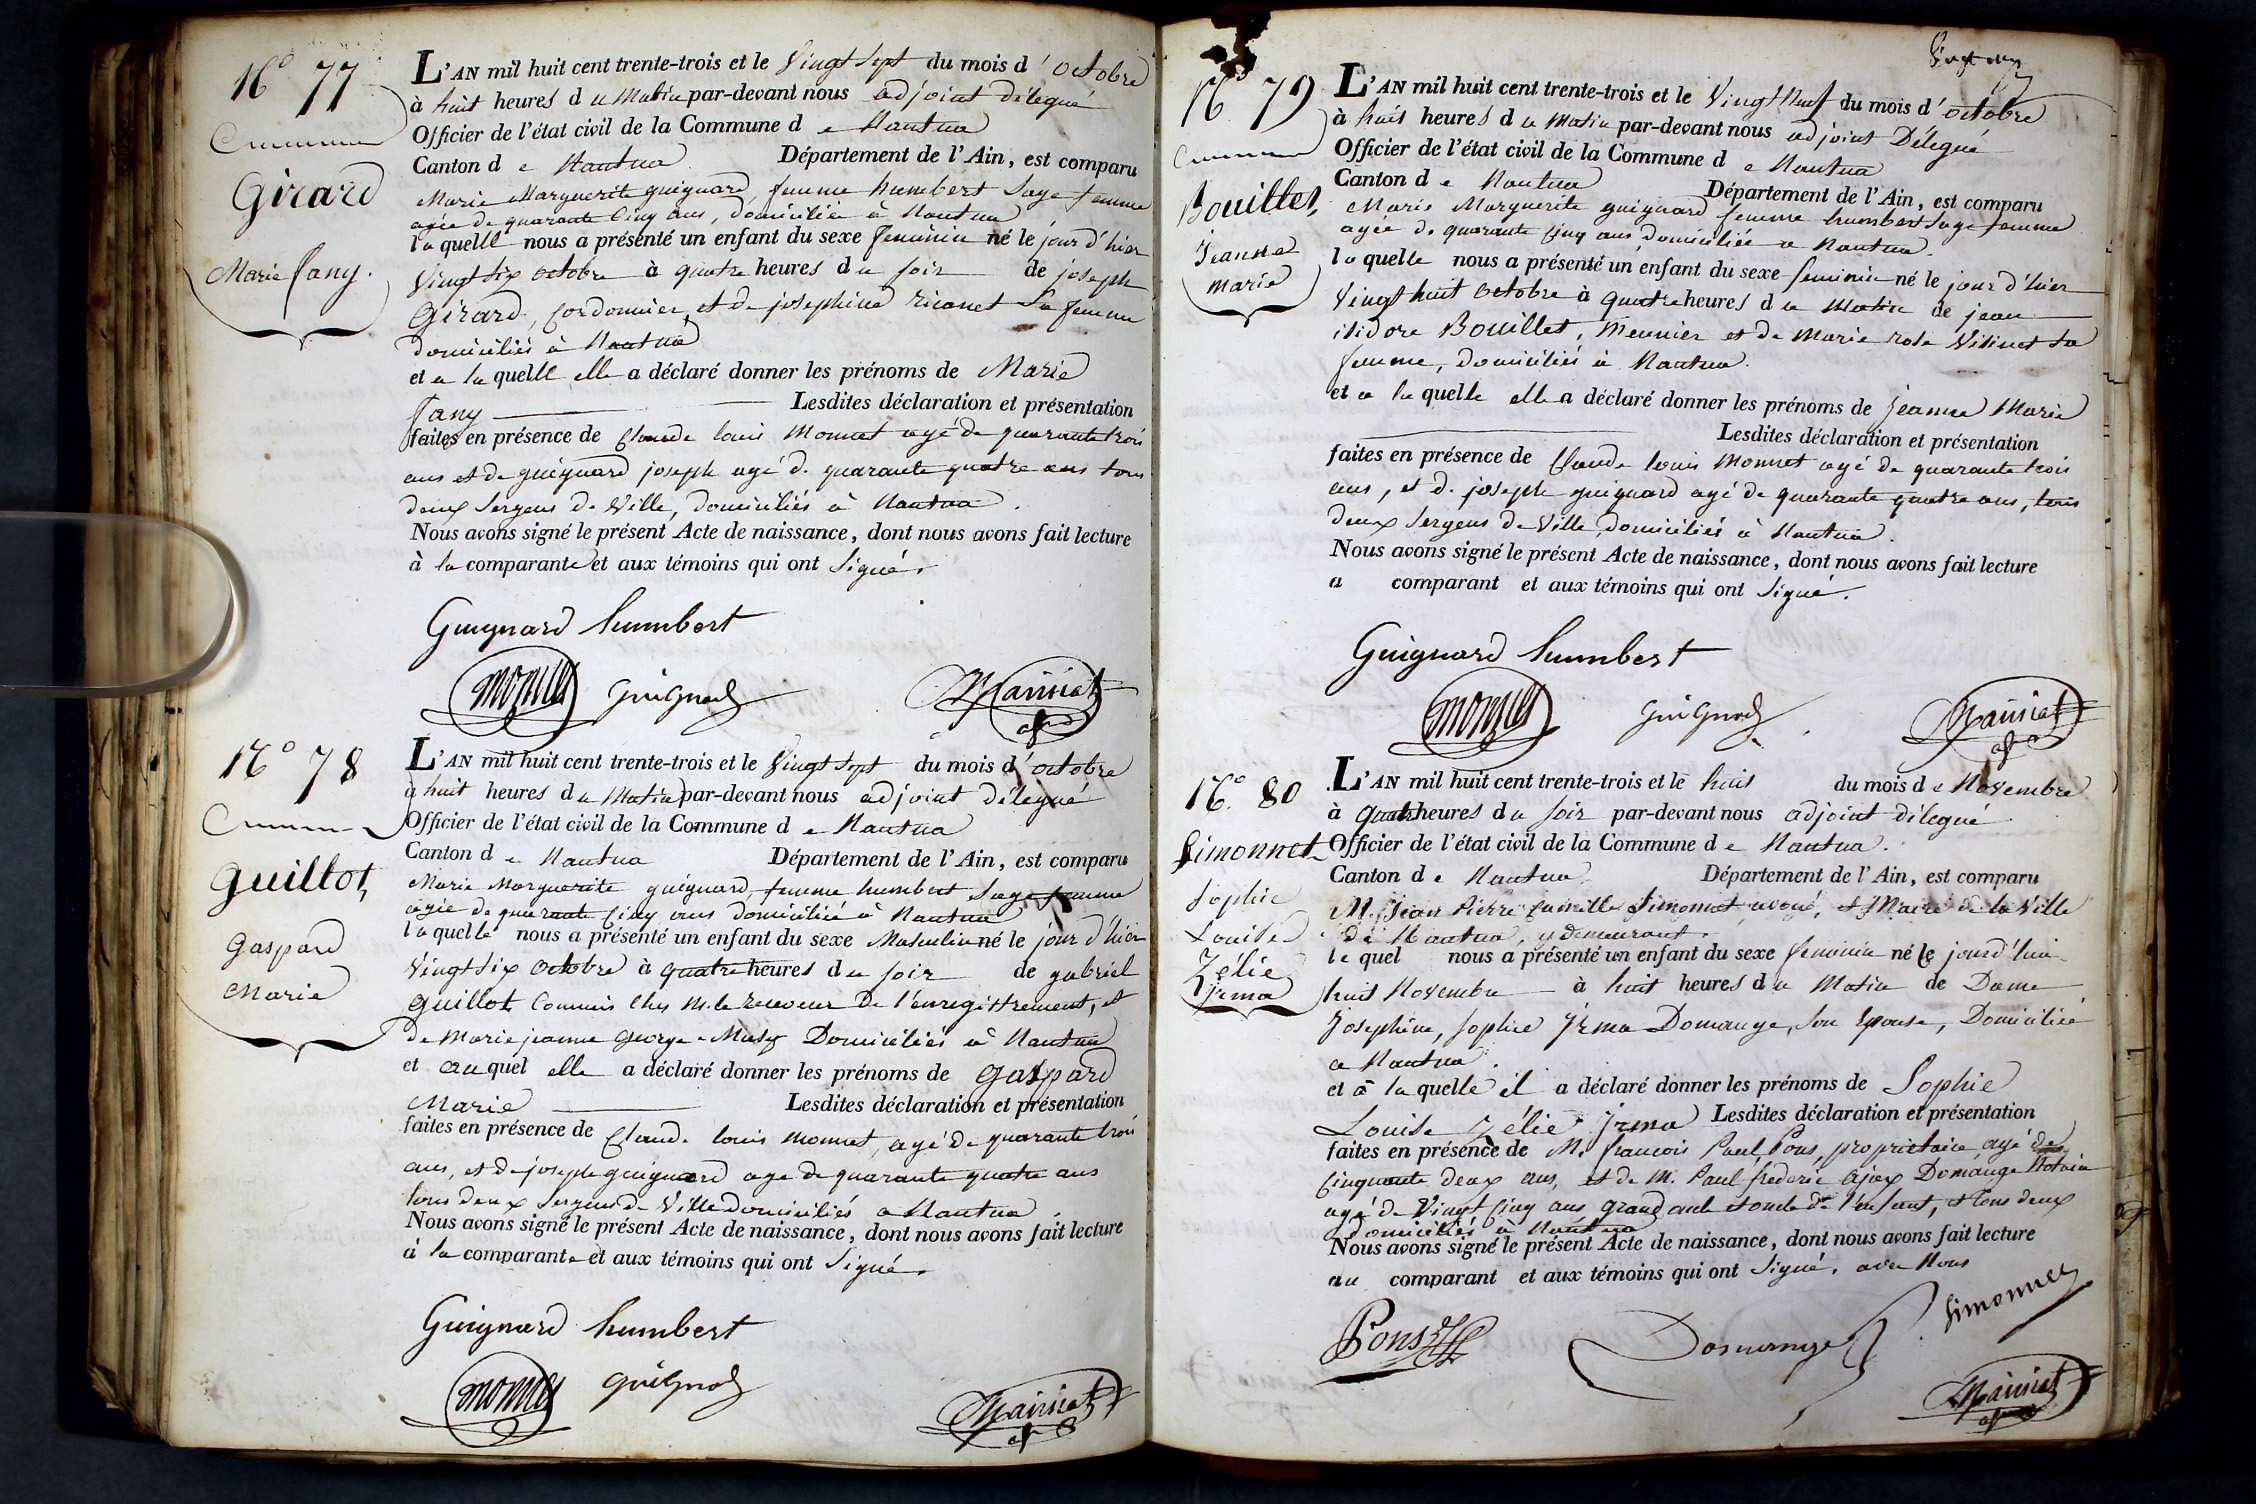 N.o 77
Girard
Marie fany.
L'AN mil huit cent trente-trois et le Vingt Sept du mois d'octobre
à huit heures du Matin par-devant nous adjoint délegué
Officier de l'état civil de la Commune de Nantua
Canton de Nantua Département de l'Ain, est comparu
Marie Marguerite guignard femme humbert Sage femme
agée de quarante Cinq ans, domiciliée à Nantua
laquelle nous a présenté un enfant du sexe feminin né le jour d'hier
Vingt Six octobre à quatre heures du soir de joseph
Girard, Cordonnier, et de josephine ricanet Sa femme
domiciliés à Nantua
et a laquelle elle a déclaré donner les prénoms de Marie
fany Lesdites déclaration et présentation
faites en présence de Claude louis Monnet agé de quarante trois
ans et de guignard joseph agé de quarante quatre ans tous
deux Sergens de Ville, domiciliés à Nantua.
Nous avons signé le présent Acte de naissance, dont nous avons fait lecture
à la comparante et aux témoins qui ont Signé.
Guignard humbert
monnet guignard
N.o 78
Guillot,
gaspard
Marie
L'AN mil huit cent trente-trois et le Vingt Sept du mois d'octobre
à huit heures du Matin par-devant nous adjoint délegué
Officier de l'état civil de la Commune de Nantua
Canton de Nantua Département de l'Ain, est comparu
Marie Marguerite guignard femme humbert Sage femme
agée de quarante Cinq ans domiciliée à Nantua
laquelle nous a présenté un enfant du sexe Masculin né le jour d'hier
Vingt Six octobre à quatre heures du soir de gabriel
guillot Commis Ches M. le receveur De l'enregistrement, et
de Marie jeanne Domiciliés à Nantua
et auquel elle a déclaré donner les prénoms de gaspard
Marie Lesdites déclaration et présentation
faites en présence de Claude louis Monnet, agé de quarante trois
ans, et de joseph guignard age de quarante quatre ans
tous deux Sergens de Ville domiciliés a Nantua
Nous avons signé le présent Acte de naissance, dont nous avons fait lecture
à la comparante et aux témoins qui ont Signé.
Guignard humbert
monnet guignard
N.o 79
Bouillet,
jeanne
marie
L'AN mil huit cent trente-trois et le Vingt Neuf du mois d'octobre
à huit heures du Matin par-devant nous adjoint Délegué
Officier de l'état civil de la Commune de Nantua
Canton de Nantua Département de l'Ain, est comparu
Marie Marguerite guignard femme humbert Sage femme
agée de quarante Cinq ans domiciliée a Nantua.
laquelle nous a présenté un enfant du sexe feminin né le jour d'hier
Vingt huit octobre à quatre heures du Matin de jean
isidore Bouillet, Meunier et de Marie rose Sa
femme, domiciliés à Nantua.
et a laquelle elle a déclaré donner les prénoms de jeanne Marie
Lesdites déclaration et présentation
faites en présence de Claude louis Monnet agé de quarante trois
ans, et de joseph guignard agé de quarante quatre ans, tous
deux Sergens de Ville, domiciliés à Nantua.
Nous avons signé le présent Acte de naissance, dont nous avons fait lecture
a comparant et aux témoins qui ont Signé.
Guignard humbert
monnet guignard
N.o 80
Simonnet
Sophie
Louise
Zélie
jrma
L'AN mil huit cent trente-trois et le huit du mois de Novembre
à quatre heures du soir par-devant nous adjoint délegué
Officier de l'état civil de la Commune de Nantua.
Canton de Nantua Département de l'Ain, est comparu
M. jean Pierre Camille Simonnet avoué, et Maire de la Ville
de Nantua, y demeurant.
lequel nous a présenté un enfant du sexe feminin né le jourd'hui
huit Novembre à huit heures du Matin de Dame
Josephine, Sophie jrma Domange, Son Epouse, Domiciliée
a Nantua.
et à laquelle il a déclaré donner les prénoms de Sophie
Louise Zélie jrma Lesdites déclaration et présentation
faites en présence de M. francois Paul Pons, proprietaire agé de
Cinquante deux ans, et de M. Paul frederic Ajax Domange Notaire
agé de Vingt Cinq ans grand oncle et oncle de l'enfant, et tous deux
domiciliés à Nantua
Nous avons signé le présent Acte de naissance, dont nous avons fait lecture
au comparant et aux témoins qui ont Signé, avec Nous
Simonnet
Pons Domange